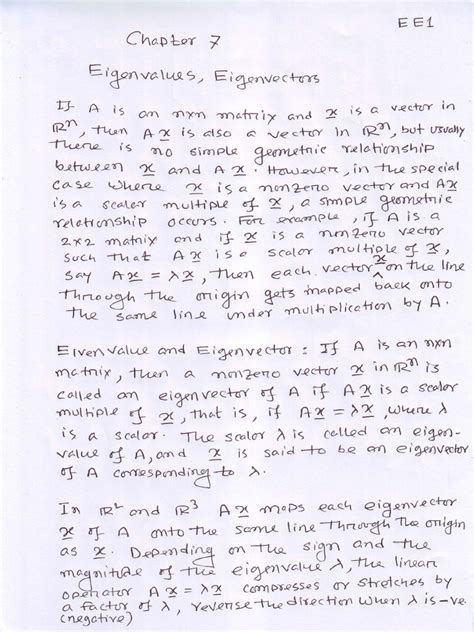 EE1
Chapter 7
Eigenvalues, Eigenvectors
If A is an nxn matrix and x is a vector in
ℝⁿ, then Ax is also a vector in ℝⁿ, but usually
there is no simple geometric relationship
between x and Ax. However, in the special
case where x is a nonzero vector and Ax
is a scalar multiple of x, a simple geometric
relationship occurs. For example, if A is a
2x2 matrix and if x is a nonzero vector
such that Ax is a scalar multiple of x,
say Ax = λx, then each vector x on the line
through the origin gets mapped back onto
the same line under multiplication by A.
Eivenvalue and Eigenvector : If A is an nxn
matrix, then a nonzero vector x in ℝⁿ is
called an eigenvector of A if Ax is a scalar
multiple of x, that is, if Ax = λx, where λ
is a scalar. The scalar λ is called an eigen-
value of A, and x is said to be an eigenvector
of A corresponding to λ.
In ℝ² and ℝ³ Ax maps each eigenvector
x of A onto the same line through the origin
as x. Depending on the sign and the
magnitude of the eigenvalue λ, the linear
operator Ax = λx compresses or stretches by
a factor of λ, reverse the direction when λ is -ve
(negative)